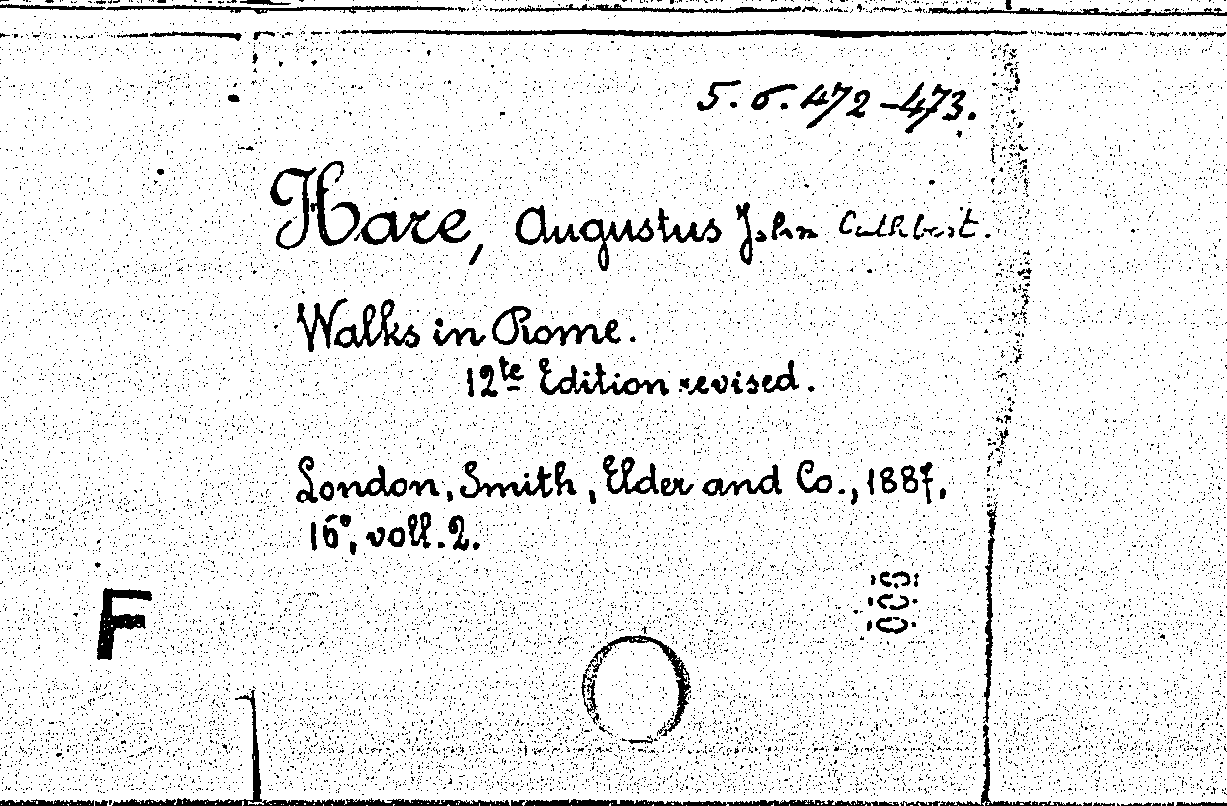 5. 6. 472-473.
Hare, Augustus John Cuthbert.
Walks in Rome.
12te Edition revised.
London, Smith, Elder and Co., 1887,
16°, voll. 2.
F